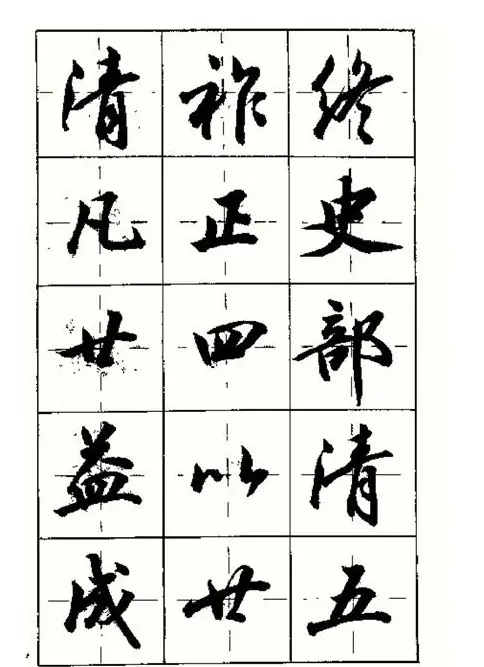 清祚终
凡正史
廿四部
益以清
成廿五